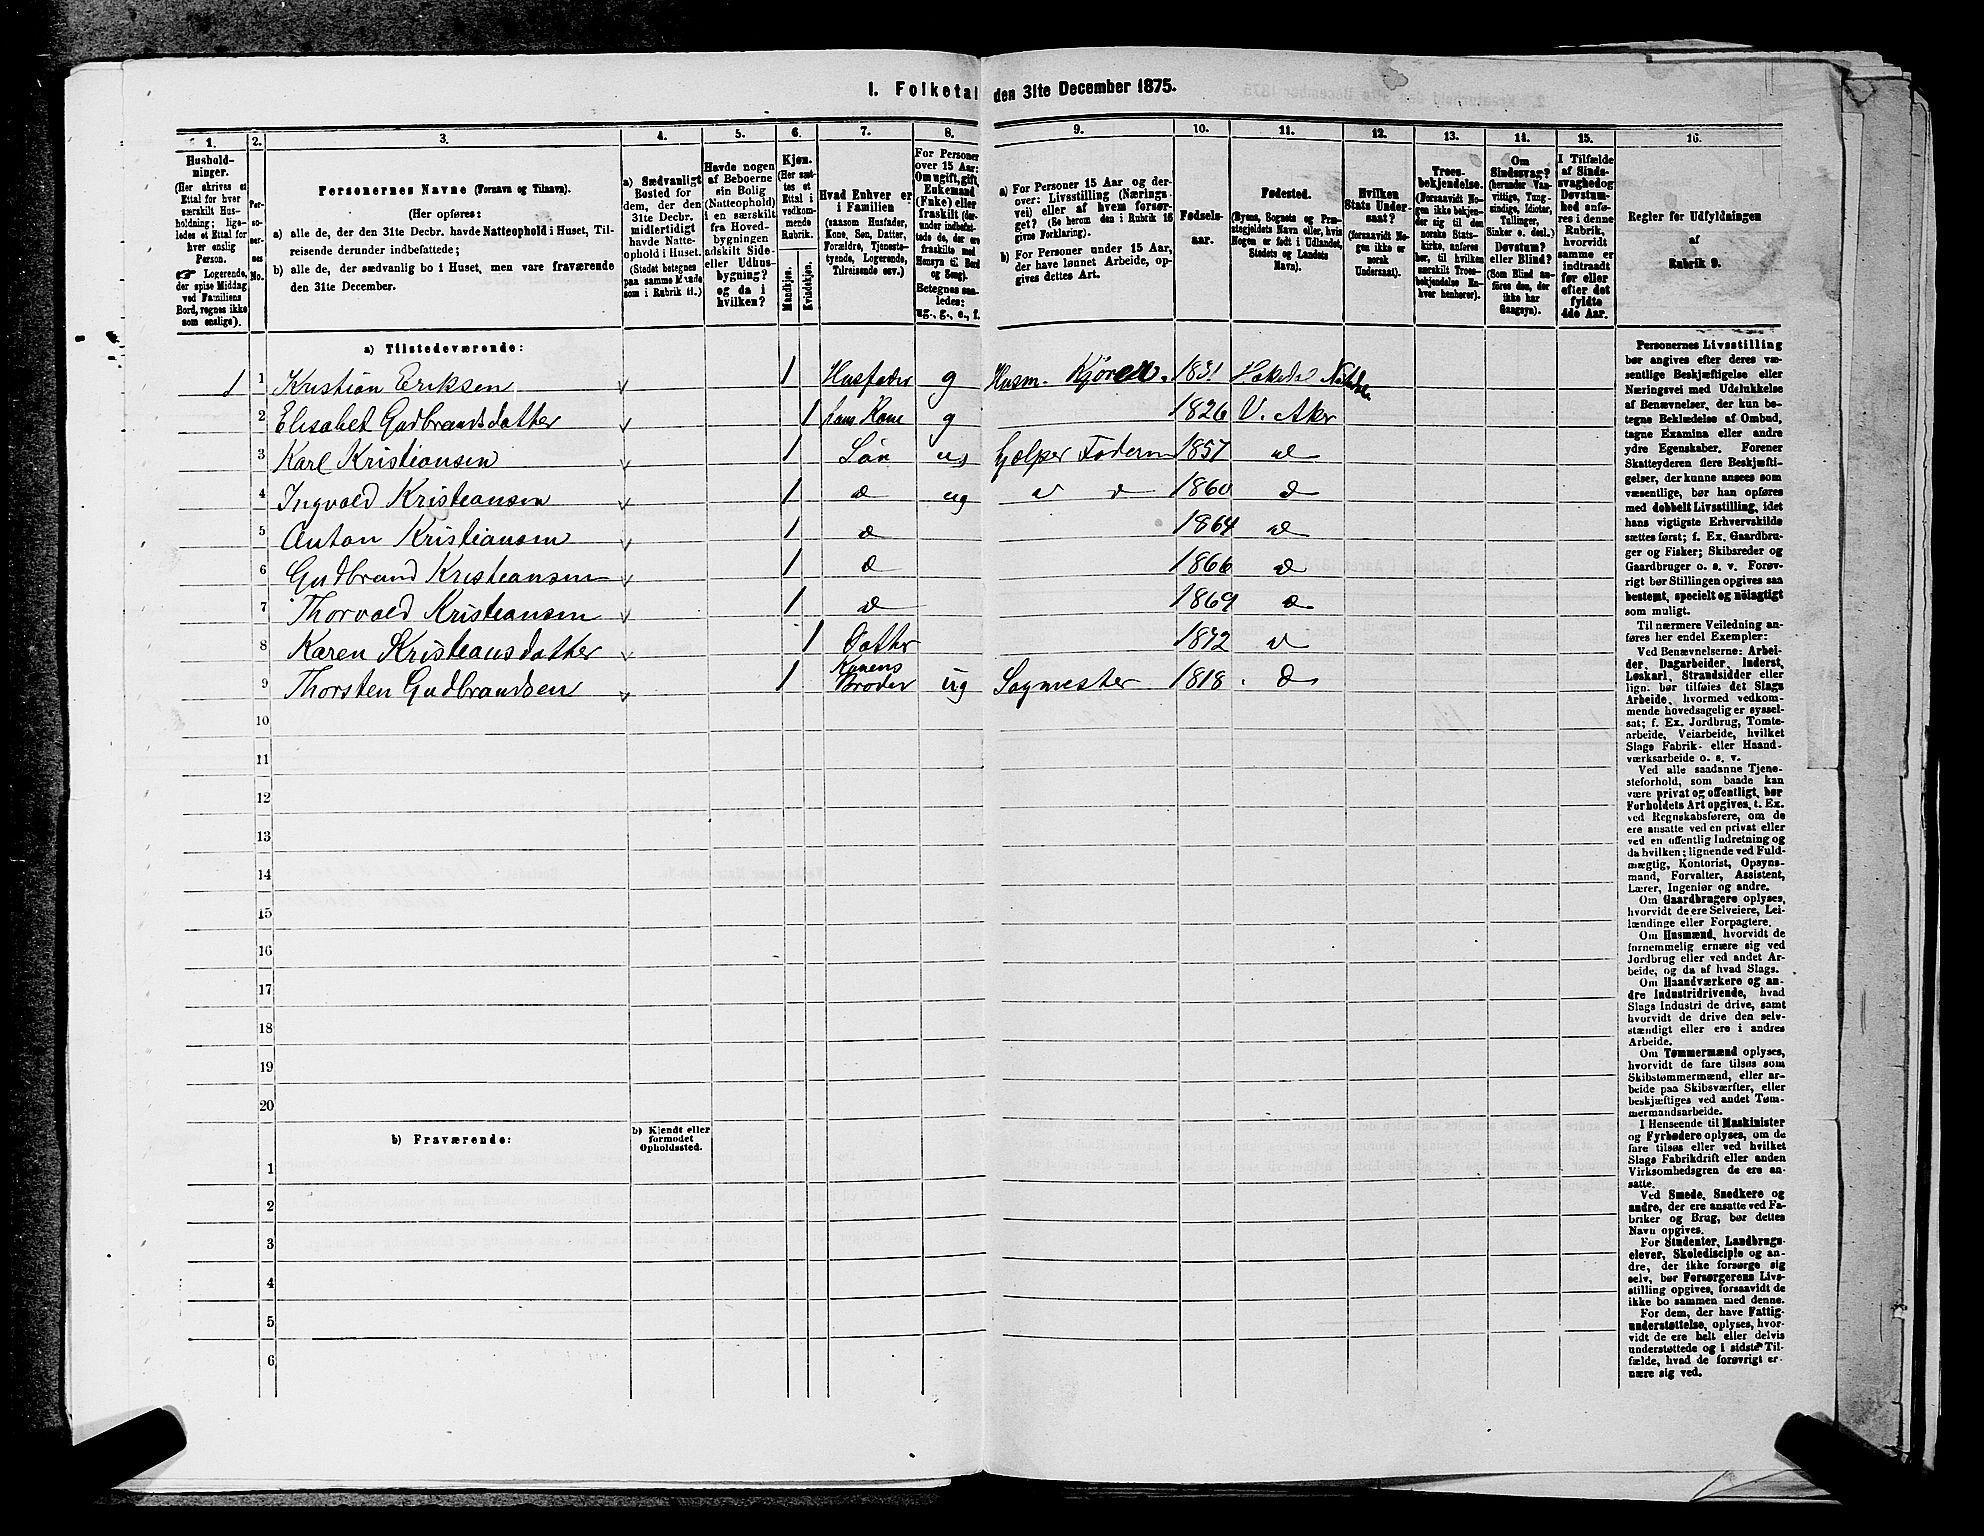 I. Folketal den 31te December 1875.
1. 2. 3. 4. 5. 6. 7. 8. 9. 10. 11. 12. 13. 14. 15. 16.
Hushold-
ninger.
(Her skrives et
Ettal for hver
særskilt Hus-
holdning; lige-
ledes et Ettal for
hver enslig
Person.
☞ Logerende,
der spise Middag
ved Familiens
Bord, regnes ikke
som enslige).
Per-
so-
ner-
nes
No.
Personernes Navne (Fornavn og Tilnavn).
(Her opføres:
a) alle de, der den 31te Decbr. havde Natteophold i Huset, Til-
reisende derunder indbefattede;
b) alle de, der sædvanlig bo i Huset, men vare fraværende
den 31te December.
a) Sædvanligt
Bosted for
dem, der den
31te Decbr.
midlertidigt
havde Natte-
ophold i Huset.
(Stedet betegnes
paa samme Maade
som i Rubrik 11.)
Havde nogen
af Beboerne
sin Bolig
(Natteophold)
i en særskilt
fra Hoved-
bygningen
adskilt Side-
eller Udhus-
bygning?
og da i
hvilken?
Kjøn.
(Her sæt-
tes et
Ettal i
vedkom-
mende
Rubrik.
Mandkjøn.
Kvindekjøn.
Hvad Enhver er
i Familien
(saasom Husfader,
Kone, Søn, Datter,
Forældre, Tjeneste-
tyende, Logerende,
Tilreisende osv.)
For Personer
over 15 Aar:
Om ugift, gift,
Enkemand
(Enke) eller
fraskilt (der-
under indbefat-
tede de, der ere
fraskilte med
Hensyn til Bord
og Seng).
Betegnes saa-
ledes:
ug., g., e., f.
a) For Personer 15 Aar og der-
over: Livsstilling (Nærings-
vei) eller af hvem forsør-
get? (Se herom den i Rubrik 16
givne Forklaring).
b) For Personer under 15 Aar,
der have lønnet Arbeide, op-
gives dettes Art.
Fødsels-
aar.
Fødested.
(Byens, Sognets og Præ-
stegjeldets Navn eller, hvis
Nogen er født i Udlandet,
Stedets og Landets
Navn).
Hvilken
Stats Under-
saat?
(forsaavidt No-
gen ikke er
norsk
Undersaat).
Troes-
bekjendelse.
(Forsaavidt No-
gen ikke bekjen-
der sig til den
norske Stats-
kirke, anføres
her, til hvilken
særskilt Troes-
bekjendelse En-
hver henhører).
Om
Sindssvag?
(herunder Van-
vittige, Tung-
sindige, Idioter,
Tullinger,
Sinker o. desl.)
Døvstum?
eller Blind?
(Som Blind an-
føres den, der
ikke har
Gangsyn).
I Tilfælde
af Sinds-
svaghed og
Døvstum-
hed anfø-
res i denne
Rubrik,
hvorvidt
samme er
indtraadt
før eller
efter det
fyldte
4de Aar.
Regler for Udfyldningen
af
Rubrik 9.
a) Tilstedeværende:
1 1 Kristian Eriksen 1 Husfader g Husm. Kjører. 1831 Hakedal Nitedal
2 Elisabet Gudbrandsdatter 1 hans Kone g 1826 V. Aker
3 Karl Kristiansen 1 Søn ug hjælper Faderen 1857 d
4 Ingvald Kristiansen 1 d ug d d 1860 d
5 Anton Kristiansen 1 d 1864 d
6 Gudbrand Kristiansen 1 d 1866 d
7 Thorvald Kristiansen 1 d 1869 d
8 Karen Kristiansdatter 1 Datter 1872 d
9 Thorsten Gudbrandsen 1 Konens Broder ug Sagmester 1818 d
10
11
12
13
14
15
16
17
18
19
20
b) Fraværende:
b) Kjendt eller
formodet
Opholdssted.
1
2
3
4
5
6
Personernes Livsstilling
bør angives efter deres væ-
sentlige Beskjæftigelse eller
Næringsvei med Udelukkelse
af Benævnelser, der kun be-
tegne Beklædelse af Ombud,
tagne Examina eller andre
ydre Egenskaber. Forener
Skatteyderen flere Beskjæfti-
gelser, der kunne ansees som
væsentlige, bør han opføres
med dobbelt Livsstilling, idet
hans vigtigste Erhvervskilde
sættes først; f. Ex. Gaardbru-
ger og Fisker; Skibsreder og
Gaardbruger o. s. v. Forøv-
rigt bør Stillingen opgives saa
bestemt, specielt og nöiagtigt
som muligt.
Til nærmere Veiledning an-
føres her endel Exempler:
Ved Benævnelserne: Arbei-
der, Dagarbeider, Inderst,
Løskarl, Strandsidder eller
lign. bør tilføies det Slags
Arbeide, hvormed vedkom-
mende hovedsagelig er syssel-
sat; f. Ex. Jordbrug, Tomte-
arbeide, Veiarbeide, hvilket
Slags Fabrik- eller Haand-
værksarbeide o. s. v.
Ved alle saadanne Tjene-
steforhold, som baade kan
være privat og offentligt, bør
Forholdets Art opgives, t. Ex.
ved Regnskabsførere, om de
ere ansatte ved en privat eller
ved en offentlig Indretning og
da hvilken; lignende ved Fuld-
mægtig, Kontorist, Opsyns-
mand, Forvalter, Assistent,
Lærer, Ingeniør og andre.
Om Gaardbrugere oplyses,
hvorvidt de ere Selveiere, Lei-
lændinge eller Forpagtere.
Om Husmænd, hvorvidt de
fornemmelig ernære sig ved
Jordbrug eller ved andet Ar-
beide, og da af hvad Slags.
Om Haandværkere og an-
dre Industridrivende, hvad
Slags Industri de drive, samt
hvorvidt de drive den selv-
stændigt eller ere i andres
Arbeide.
Om Tømmermænd oplyses,
hvorvidt de fare tilsøs som
Skibstømmermænd, eller ar-
beide paa Skibsværfter, eller
beskjæftiges ved andet Tøm-
mermandsarbeide.
I Henseende til Maskinister
og Fyrbødere oplyses, om de
fare tilsøs eller ved hvilket
Slags Fabrikdrift eller anden
Virksomhedsgren de ere an-
satte.
Ved Smede, Snedkere og
andre, der ere ansatte ved Fa-
briker og Brug, bør dettes
Navn opgives.
For Studenter, Landbrugs-
elever, Skoledisciple og an-
dre, der ikke forsørge sig
selv, bør Forsørgerens Livs-
stilling opgives, forsaavidt de
ikke bo sammen med denne.
For dem, der have Fattig-
understøttelse, oplyses, hvor-
vidt de ere helt eller delvis
understøttede og i sidste Til-
fælde, hvad de forøvrigt er-
nære sig ved.